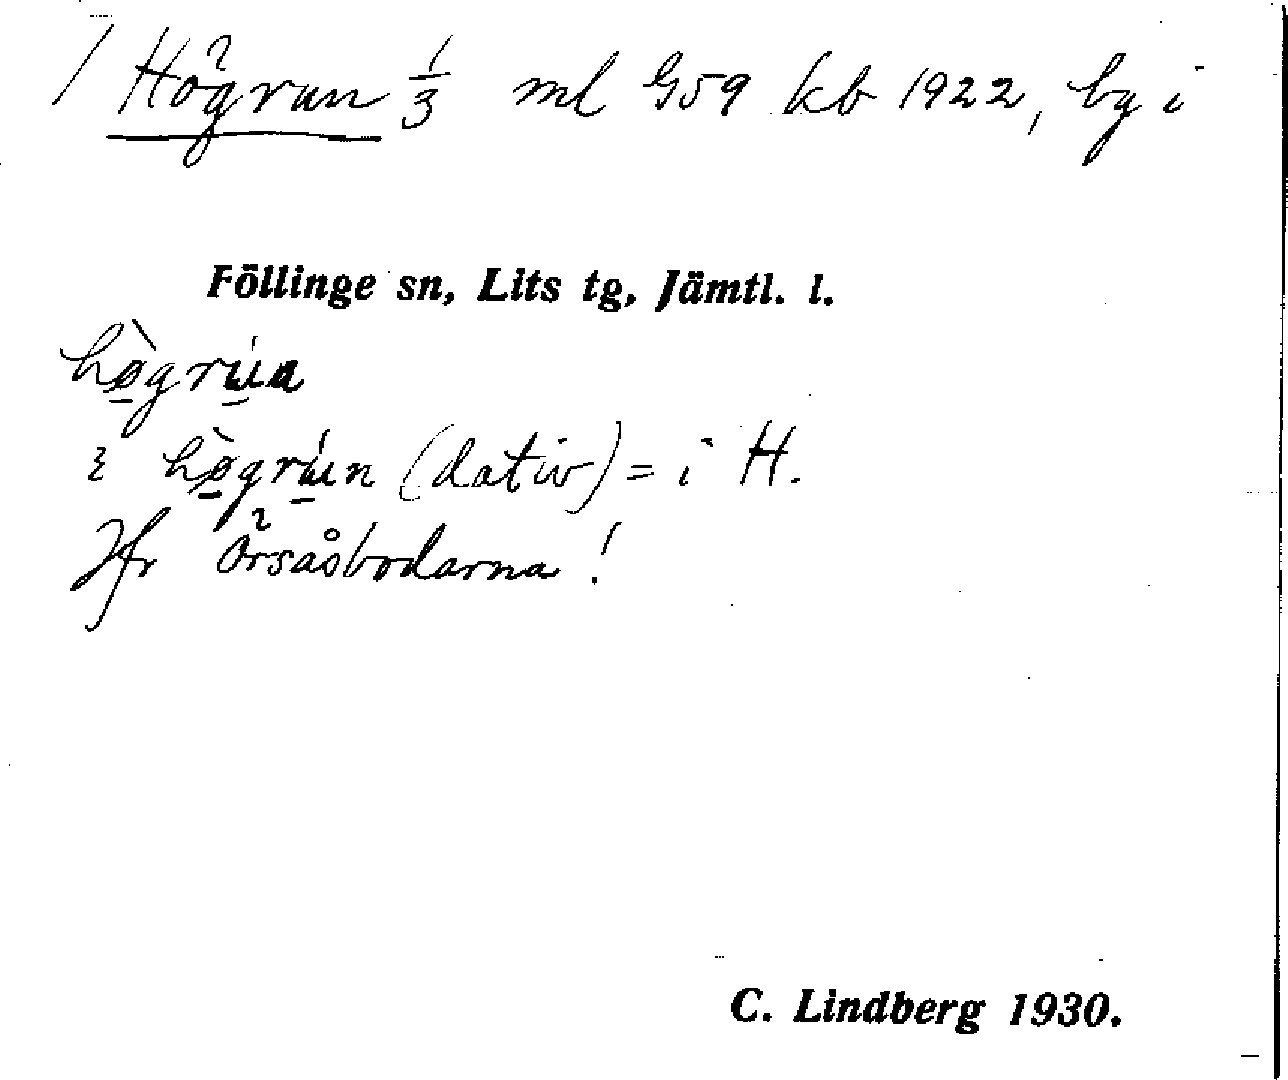 / Högrun 1/3 ml G59 kb 1922, by i
Föllinge sn, Lits tg, Jämtl. l.
hø̀grúna
i hø̀grún (dativ) = i H.
Jfr Örsåsbodarna!
C. Lindberg 1930.